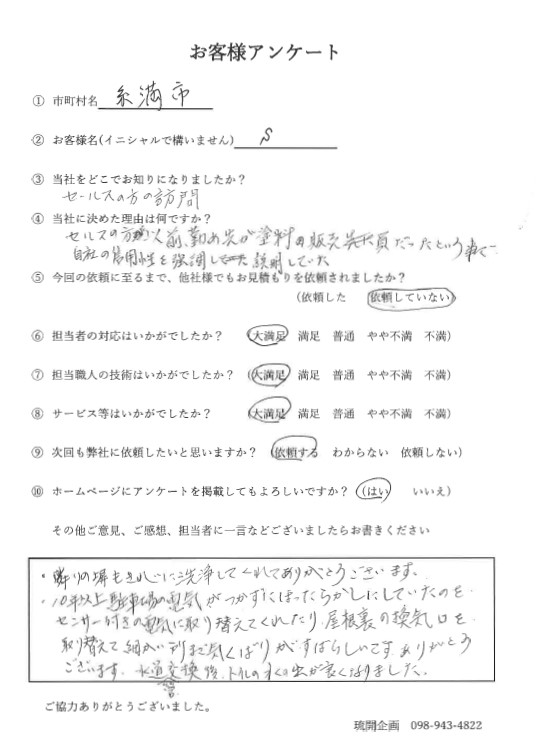 お客様アンケート
① 市町村名 糸満市
② お客様名(イニシャルで構いません) S
③ 当社をどこでお知りになりましたか?
セールスの方の訪問
④ 当社に決めた理由は何ですか?
セルスの方が以前、勤め先が塗料の販売 員だったという事で
自社の信用性を強調し 説明していた
⑤ 今回の依頼に至るまで、他社様でもお見積もりを依頼されましたか?
(依頼した 依頼していない)
⑥ 担当者の対応はいかがでしたか? (大満足 満足 普通 やや不満 不満)
⑦ 担当職人の技術はいかがでしたか? (大満足 満足 普通 やや不満 不満)
⑧ サービス等はいかがでしたか? (大満足 満足 普通 やや不満 不満)
⑨ 次回も弊社に依頼したいと思いますか? (依頼する わからない 依頼しない)
⑩ ホームページにアンケートを掲載してもよろしいですか? (はい いいえ)
その他ご意見、ご感想、担当者に一言などございましたらお書きください
・隣りの塀もきれいに洗浄してくれてありがとうございます。
・10年以上駐車場の電気がつかずにほったらかしにしていたのを
センサー付きの電気に取り替えてくれたり、屋根裏の換気口を
取り替えて細かい所まで気くばりがすばらしいです。ありがとう
ございます。水道 交換後、トイレの水の出が良くなりました。
管
ご協力ありがとうございました。
琉開企画 098-943-4822